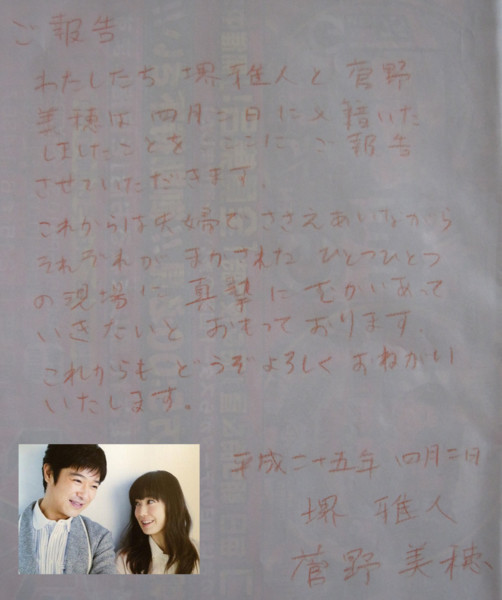 ご報告
わたしたち 堺雅人と菅野
美穂は 四月二日に入籍いた
しましたことを ここにご報告
させていただきます。
これからは夫婦で ささえあいながら
それぞれが まかされた ひとつひとつ
の現場に 真摯に むかいあって
いきたいと おもっております。
これからも どうぞよろしく おねがい
いたします。
平成二十五年 四月二日
堺 雅人
菅野 美穂